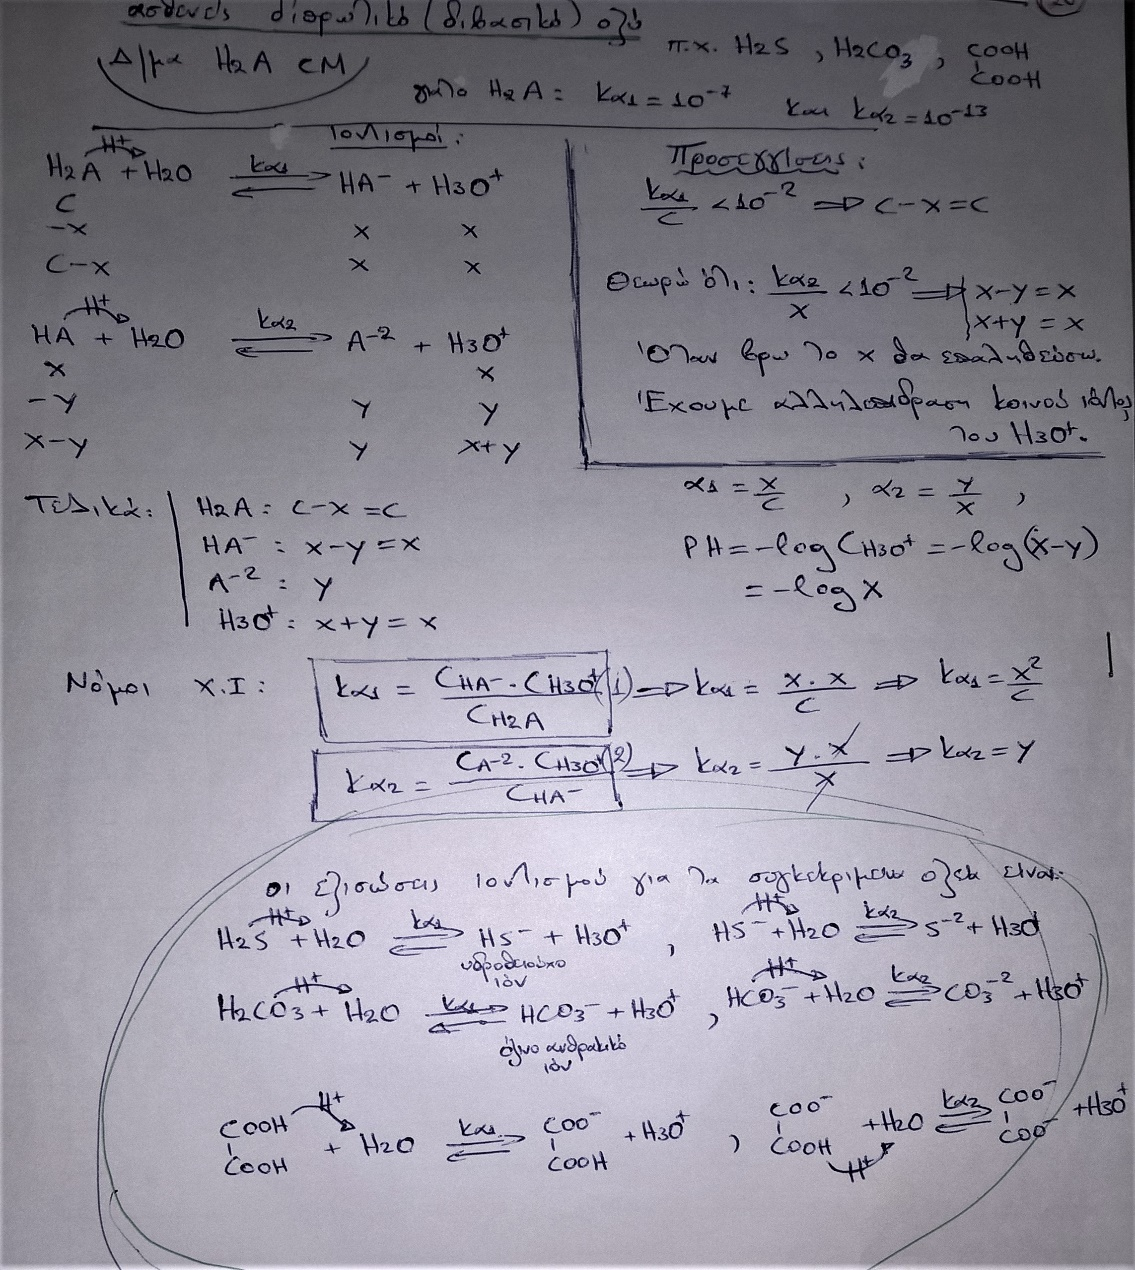 ασθενές διπρωτικό (διβασικό) οξύ
π.χ. H2S , H2CO3 , COOH
COOH
Δ/μα H2A CM
για το H2A : Kα1 = 10-7 και Kα2 = 10-13
Ιοντισμοί :
H+
H2A + H2O ⇌ Kα1 HA- + H3O+
C
-x x x
C-x x x
H+
HA + H2O ⇌ Kα2 A-2 + H3O+
x x
-y y y
x-y y x+y
Προσεγγίσεις :
Kα1/C < 10-2 ⇒ C-x=C
Θεωρώ ότι : Kα2/x < 10-2 ⇒ x-y=x
x+y = x
Όταν βρω το x θα επαληθεύσω.
Έχουμε αλληλεπίδραση κοινού ιόντος
του H3O+.
Τελικά : H2A : C-x =C
HA- : x-y=x
A-2 : y
H3O+ : x+y = x
α1 = x/C , α2 = y/x ,
PH = -log CH3O+ = -log(x-y)
= -log x
Νόμοι Χ.Ι :
Kα1 = CHA- . CH3O+ / CH2A (1) ⇒ Kα1 = x.x/C ⇒ Kα1 = x2/C
Kα2 = CA-2 . CH3O+ / CHA- (2) ⇒ Kα2 = y.x/x ⇒ Kα2 = y
οι εξισώσεις ιοντισμού για τα συγκεκριμένα οξέα είναι:
H+ H+
H2S + H2O ⇌ Kα1 HS- + H3O+ , HS- + H2O ⇌ Kα2 S-2 + H3O
υδροθειούχο
ιόν
H+ H+
H2CO3 + H2O ⇌ Kα1 HCO3- + H3O+ , HCO3- + H2O ⇌ Kα2 CO3-2 + H3O+
όξινο ανθρακικό
ιόν
COOH H+ + H2O ⇌ Kα1 COO- + H3O+ , COO- + H2O ⇌ Kα2 COO- + H3O+
COOH COOH COOH H+ COO-